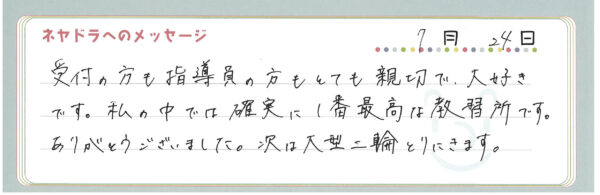 ネヤドラへのメッセージ
7月 24日
受付の方も指導員の方もとても親切で、大好き
です。私の中では確実に1番最高な教習所です。
ありがとうございました。次は大型二輪とりにきます。